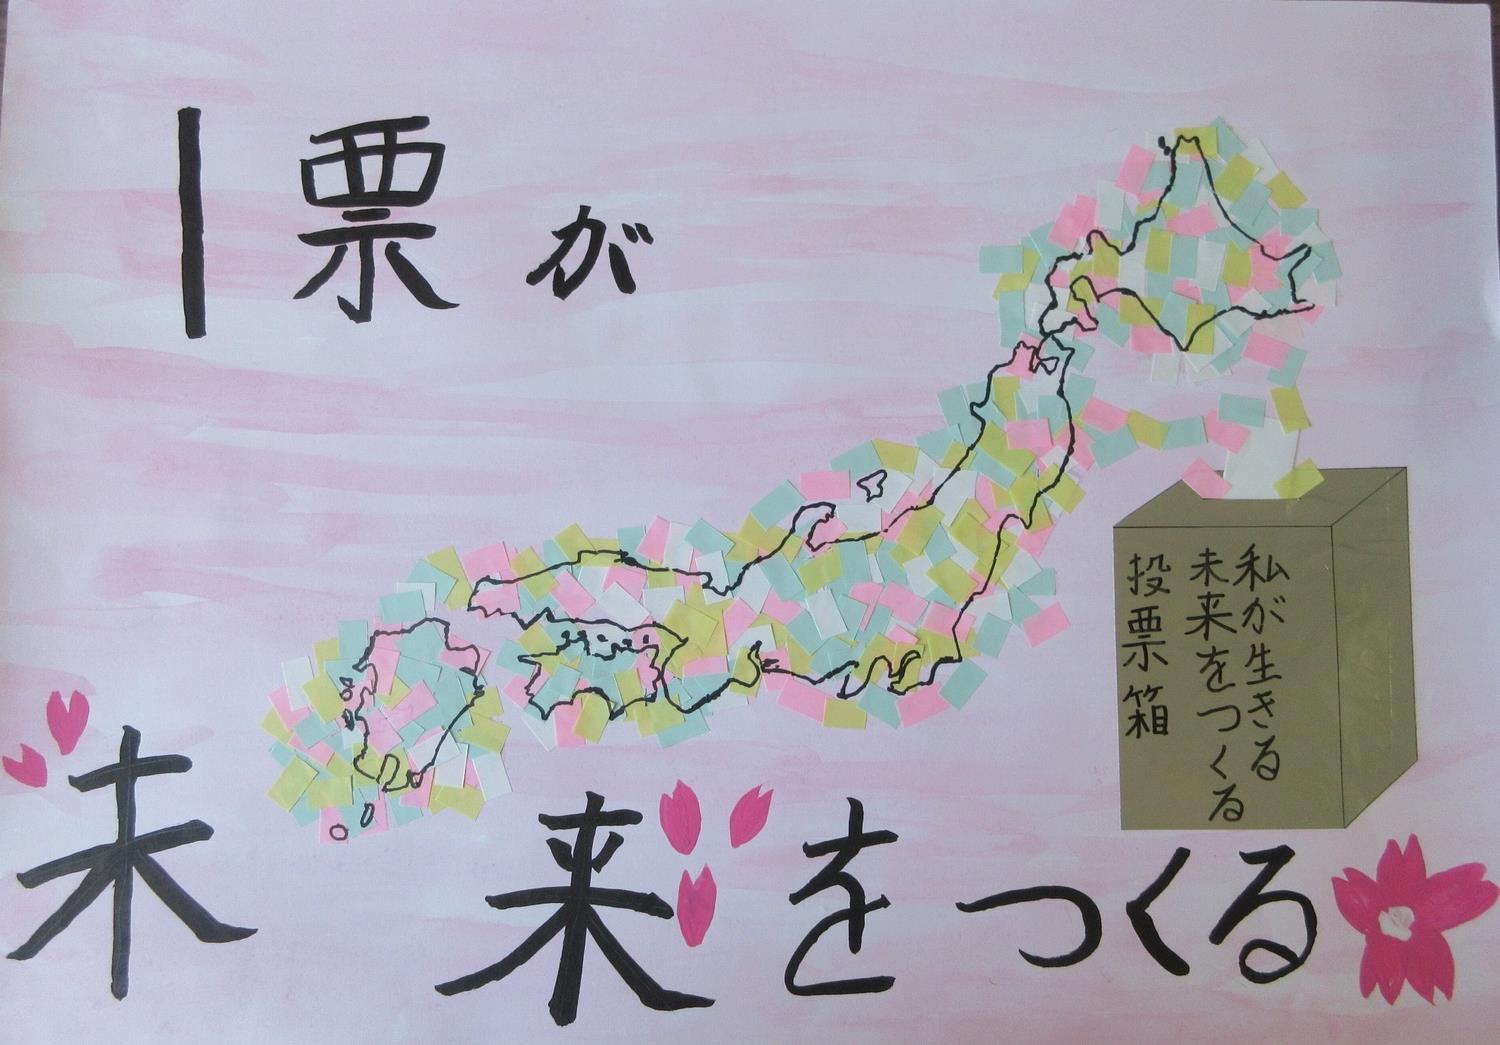 1票が
未来をつくる
私が生きる
未来をつくる
投票箱